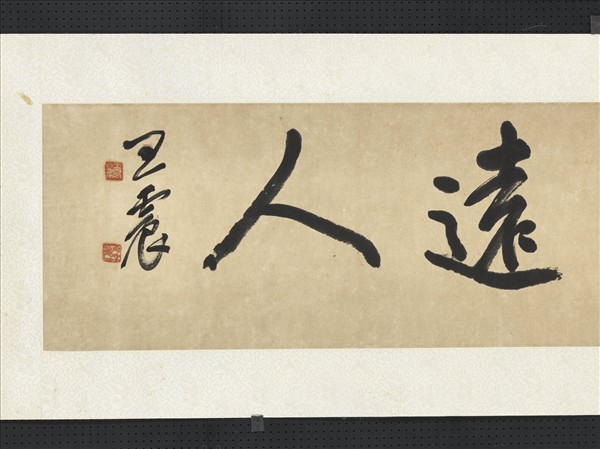 遠人
王震